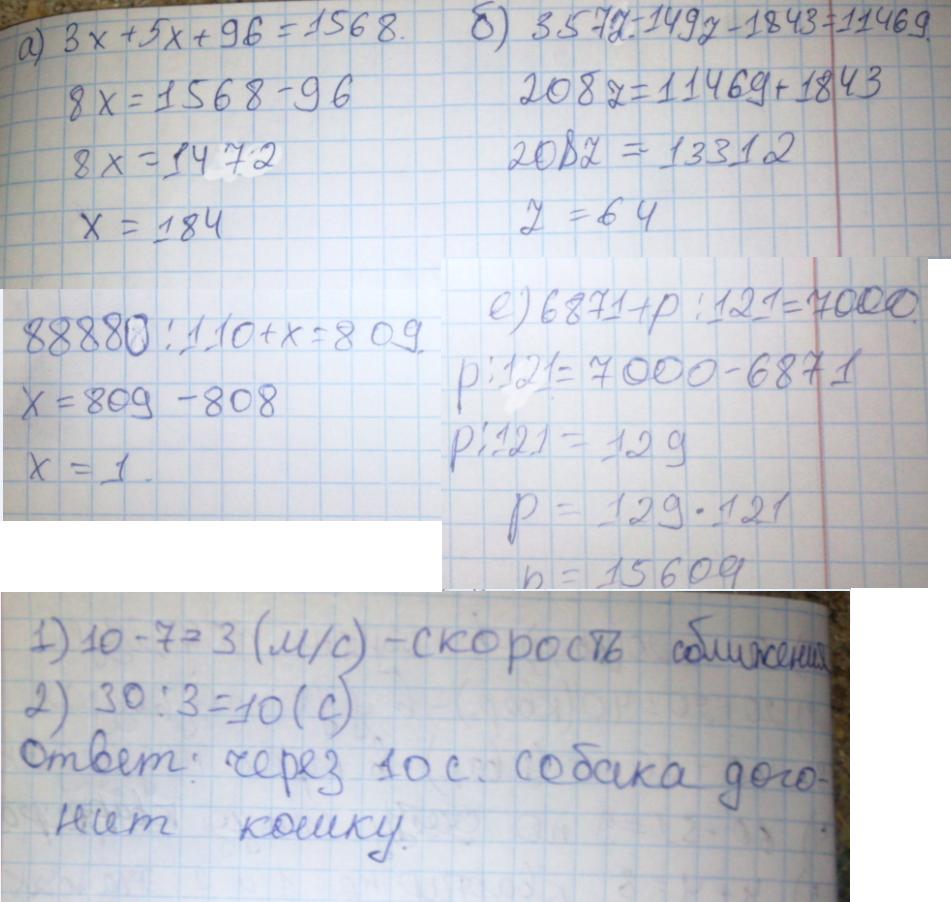 а) 3x+5x+96=1568.
8x=1568-96
8x=1472
x=184
б) 357z-149z-1843=11469.
208z=11469+1843
208z=13312
z=64
88880:110+x=809.
x=809-808
x=1.
е) 6871+p:121=7000.
p:121=7000-6871
p:121=129
p=129·121
p=15609
1) 10-7=3 (м/с) - скорость сближения
2) 30:3=10 (с)
Ответ: через 10 с. собака дого-
нит кошку.